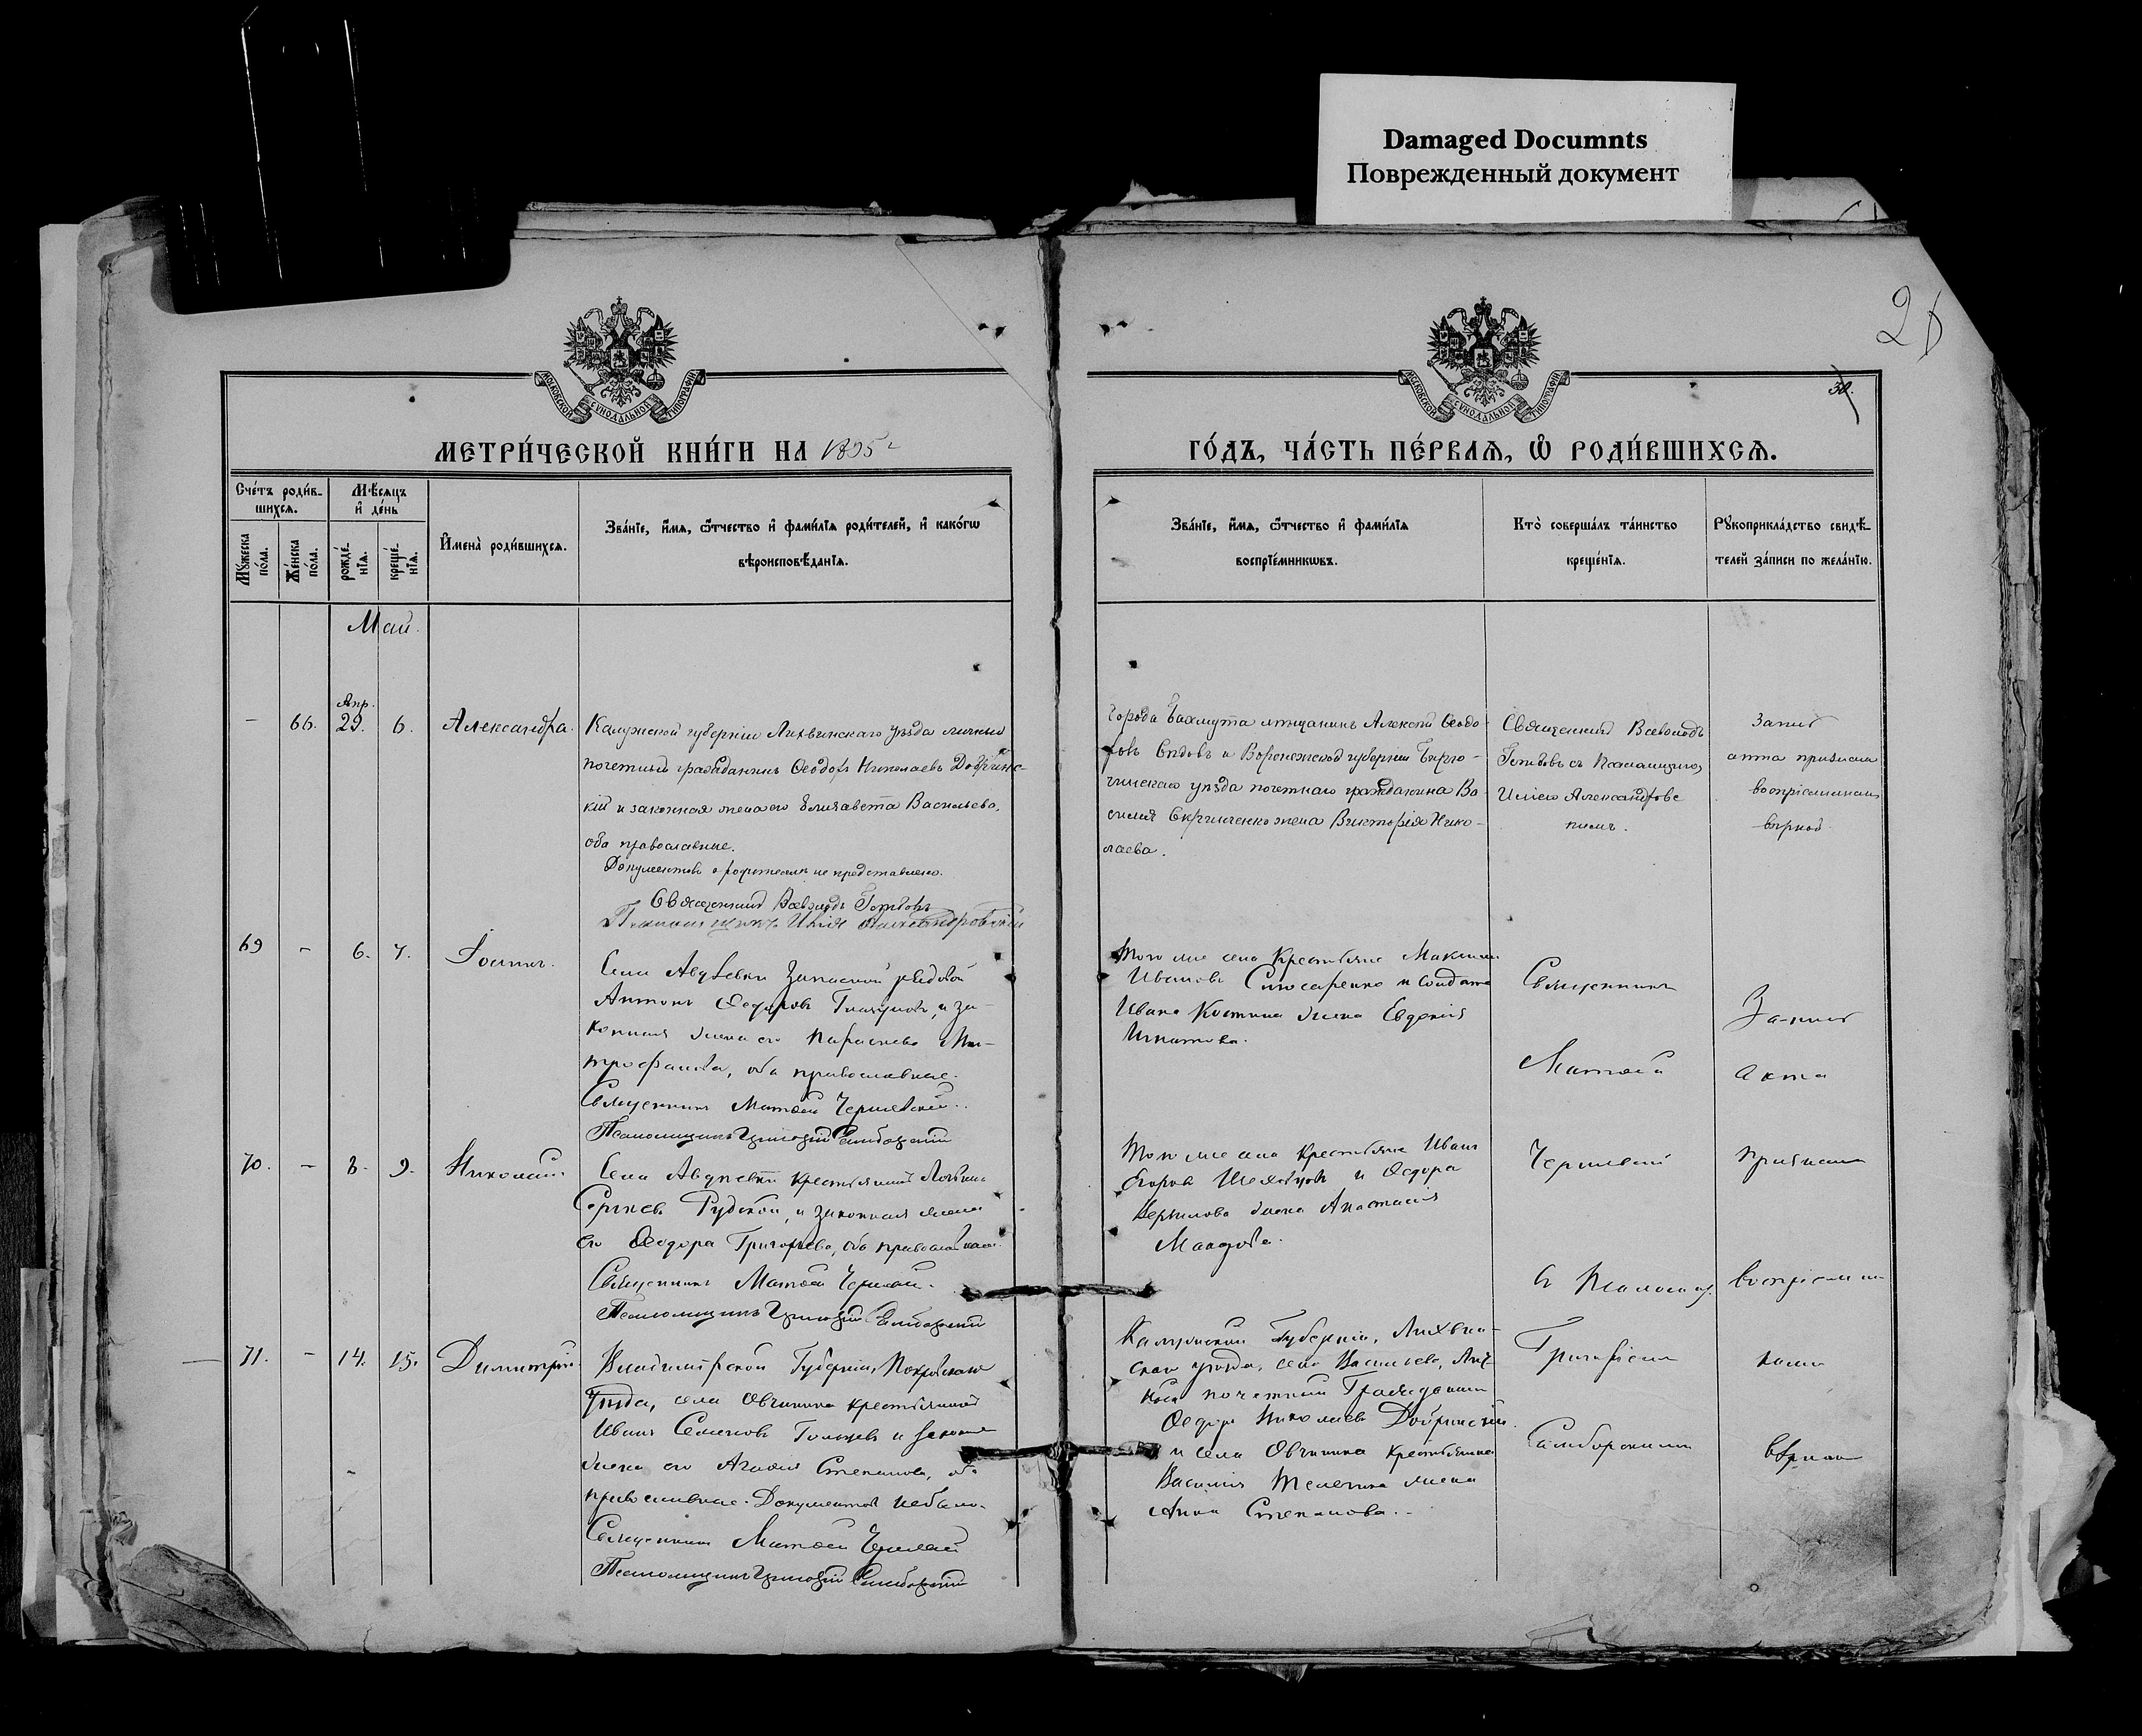 Damaged Documnts
Поврежденный документ
26
30.
МОСКОВСКОЙ СѴНОДАЛЬНОЙ ТИПОГРАФІИ
МОСКОВСКОЙ СѴНОДАЛЬНОЙ ТИПОГРАФІИ
МЕТРИ́ЧЕСКОЙ КНИ́ГИ НА 1895 г
ГО́ДЪ, ЧА́СТЬ ПЕ́РВАѦ, Ѿ РОДИ́ВШИХСѦ.
Сче́тъ роди́в-
шихсѧ.
Мꙋжеска по́ла.
Же́нска по́ла.
Мѣ́сѧцъ
и҆ де́нь
рожде́-
нїѧ.
креще́-
нїѧ.
И҆мена̀ роди́вшихсѧ.
Зва́нїе, и҆́мѧ, ѻ҆́тчество и҆ фами́лїѧ роди́телей, и҆ како́гѡ
вѣроисповѣ́данїѧ.
Зва́нїе, и҆́мѧ, ѻ҆́тчество и҆ фами́лїѧ
воспрїе́мникѡвъ.
Кто̀ соверша́лъ та́инство
креще́нїѧ.
Рꙋкоприкла́дство свидѣ́-
телей за́писи по жела́нїю.
Май.
Апр.
– 66. 29. 6. Александра.
Калужской губерніи Лихвинскаго уѣзда личный
почетный гражданинъ Ѳеодоръ Николаевъ Добринс-
кій и законная жена его Елизавета Васильева,
оба православные.
Документовъ о рожденіи не представлено.
Священникъ Всеволодъ
Псаломщикъ Илія Александровскій
Города Бахмута мѣщанинъ Алексѣй Ѳеодо-
ровъ Сѣдовъ и Воронежской губерніи Бирю-
чинскаго уѣзда почетнаго гражданина Ва-
силія жена Викторія Нико-
лаева.
Священникъ Всеволодъ
съ Псаломщикомъ
Иліею Александровс
кимъ.
Запись
акта признаемъ
воспріемниками
вѣрной
69 – 6. 7. Іоаннъ.
Села Авдѣевки Запасной рядовой
Антонъ Ѳедоровъ и за-
конная жена его Параскева Ми-
трофанова, оба православные.
Священникъ Матѳей Чернявскій.
Псаломщикъ Григорій Самборскій
Того же села Крестьяне Максимъ
Ивановъ Слюсаренко и солдата
Ивана Костина жена Евдокія
Игнатова.
Священникъ
Матѳей
Запись
акта
70. – 8. 9. Николай
Села Авдѣевки крестьянинъ Логвинъ
Сергѣевъ Рудской, и законная жена
его Ѳеодора Григорьева, оба православные.
Священникъ Матѳей Чернявскій.
Псаломщикъ Григорій Самборскій
Того же села крестьяне Иванъ
Егоровъ и Ѳедора
жена Анастасія
Чернявскій
признаемъ
съ Псаломщ.
воспріемни-
71. – 14. 15. Димитрій.
Владимірской Губерніи, Покровскаго
Уѣзда, села Овчинина крестьянинъ
Иванъ Семеновъ и законная
жена его Агафія Степанова, оба
православные. Документовъ не было.
Священникъ Матѳей Чернявскій
Псаломщикъ Григорій Самборскій
Калужской Губерніи, Лихвин-
скаго уѣзда, села Васильева, Лич-
ной почетный Гражданинъ
Ѳедоръ Николаевъ Добринскій
и села Овчинина крестьянина
Василія жена
Анна Степанова.
Григоріемъ
Самборскимъ
ками
вѣрною